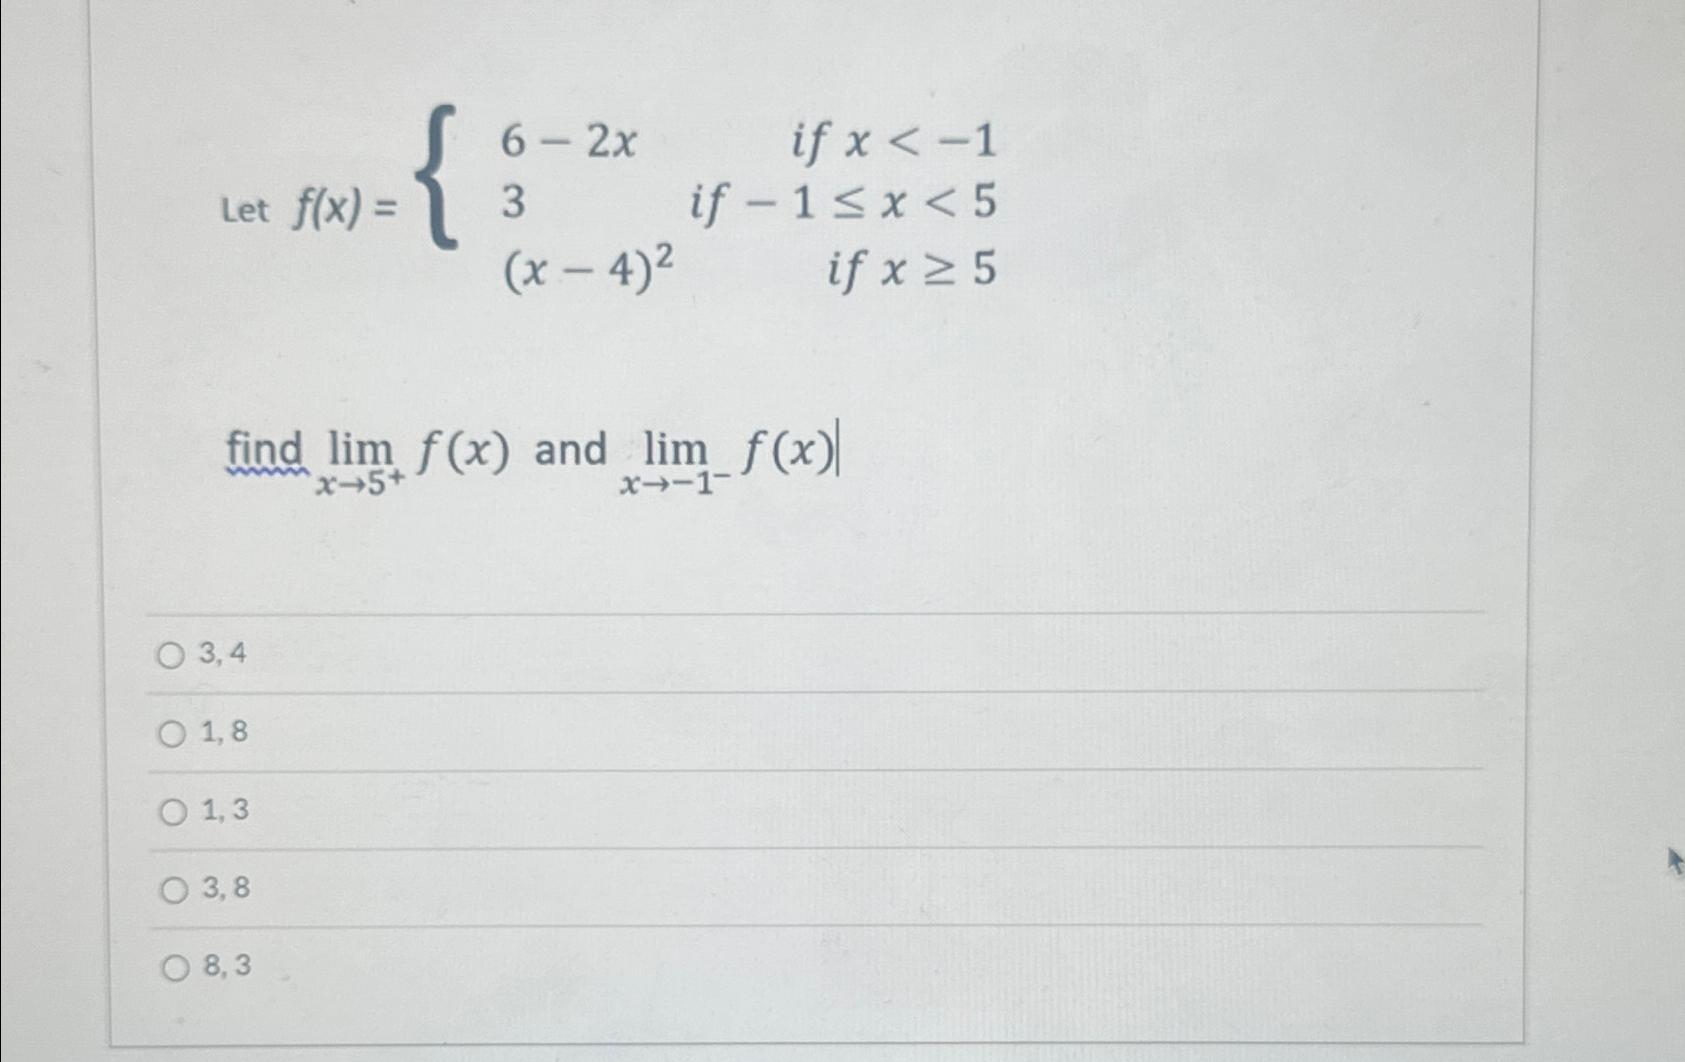 Let f(x) = { 6 − 2x if x < −1
3 if − 1 ≤ x < 5
(x − 4)² if x ≥ 5
find lim x→5⁺ f(x) and lim x→−1⁻ f(x)
3, 4
1, 8
1, 3
3, 8
8, 3